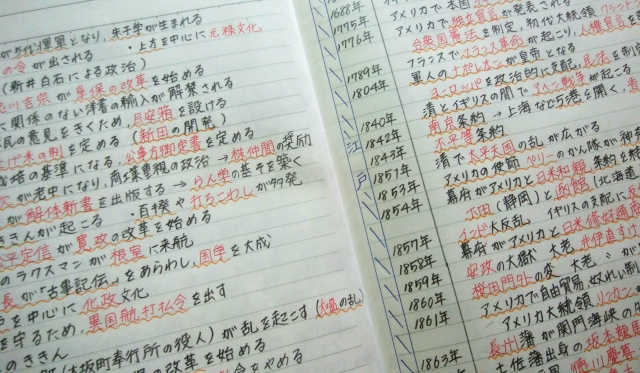 が5代将軍となり、朱子学が生まれる
の令が出される ・上方を中心に元禄文化
(新井白石による政治)
川吉宗が享保の改革を始める
に関係のない洋書の輸入が解禁される
民の意見をきくため、目安箱を設ける
上げ米の制を定める(新田の開発)
の基準になる、公事方御定書を定める
が老中になり、商工業重視の政治→株仲間の奨励
が解体新書を出版する→らん学の基そを築く
ききんが起こる ・百揆や打ちこわしが多発
平定信が寛政の改革を始める
のラクスマンが根室に来航
長が「古事記伝」をあらわし、国学を大成
を中心に化政文化
を守るため、異国船打払令を出す
のききん
(大坂町奉行所の役人)が乱を起こす(大塩の乱)
の改革を始める
令をやめる
1688年
1775年
1776年
1789年
1804年
1840年
1842年
1843年
1857年
1853年
1854年
1857年
1858年
1859年
1860年
1861年
1863年
江戸
アメリカで本国
アメリカで独立宣言が発表される
合衆国憲法を制定、初代大統領
フランスでフランス革命が起こり、人権宣言
軍人のナポレオンが皇帝となる
ヨーロッパを政治的に支配、民法を制
清とイギリスの間でアヘン戦争が起こる
南京条約→上海など5港を開く、
不平等条約
清で太平天国の乱が広がる
アメリカの使節 ペリーのかん隊が神
幕府がアメリカと日米和親条約を
下田(静岡)と函館(北海道
インド大反乱 イギリスの支配に
幕府がアメリカと日米修好通商
安政の大獄 大老 井伊直すけ
桜田門外の変 大老 が
アメリカで自由貿易、奴れい制
アメリカ大統領 リンカン
長州藩が関門海峡の
土佐藩出身の坂本龍
徳川慶喜